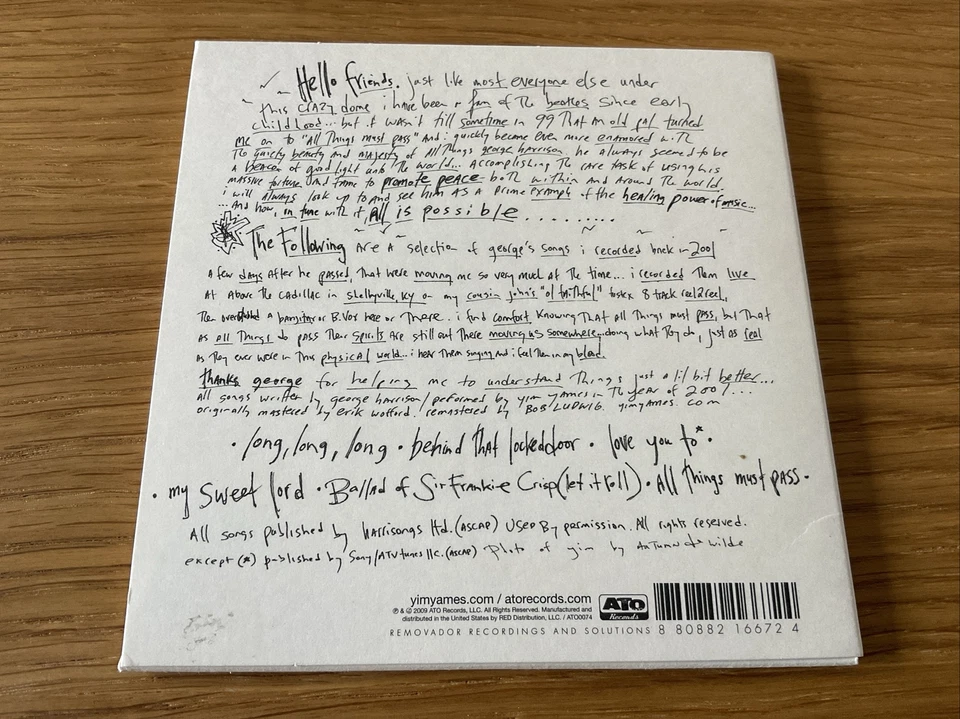 Hello friends. just like most everyone else under
this CRAZY dome i have been a fan of The beatles since early
childhood... but it wasn't till sometime in 99 that an old pal turned
me on to "All Things must pass" And i quickly became even more enamored with
The quiety beauty and majesty of All Things george harrison. he always seemed to be
a beacon of good light unto the world... Accomplishing The rare task of using his
massive fortune and fame to promote peace both within and Around The world.
i will always look up to and see him as a prime example of the healing power of music...
...And how, in tune with it, All is possible.........
The Following are a selection of george's songs i recorded back in 2001
a few days after he passed, That were moving me so very much at the time... i recorded Them live
at Above the Cadillac in shelbyville, KY on my cousin john's "ol faithful" tostex 8 track reel 2 reel,
Then overdubbed a banjitar or B.Vox here or There. i find comfort knowing That All Things must pass, but That
as all Things do pass Their spirits are still out There moving us somewhere, doing what They do, just as real
as They ever were in This physical world... i hear Them singing and i feel Them in my blood.
thanks george for helping me to understand Things just a lil bit better...
all songs written by george harrison/peformed by yim yames in The year of 2001...
originally mastered by erik wofford. remastered by BOB LUDWIG. yimyames.com
· long, long, long · behind That locked door · love you to* ·
· my Sweet lord · Ballad of Sir Frankie Crisp (let it roll) · All Things must pass ·
All songs published by Harrisongs ltd. (ASCAP) Used By permission. All rights reserved.
except (*) published by Sony/ATV tunes llc. (ASCAP) Photo of yim by Autumn de Wilde
yimyames.com / atorecords.com
℗ & © 2009 ATO Records, LLC. All Rights Reserved. Manufactured and
distributed in the United States by RED Distribution, LLC. / ATO0074
ATO Records
REMOVADOR RECORDINGS AND SOLUTIONS
8 80882 16672 4